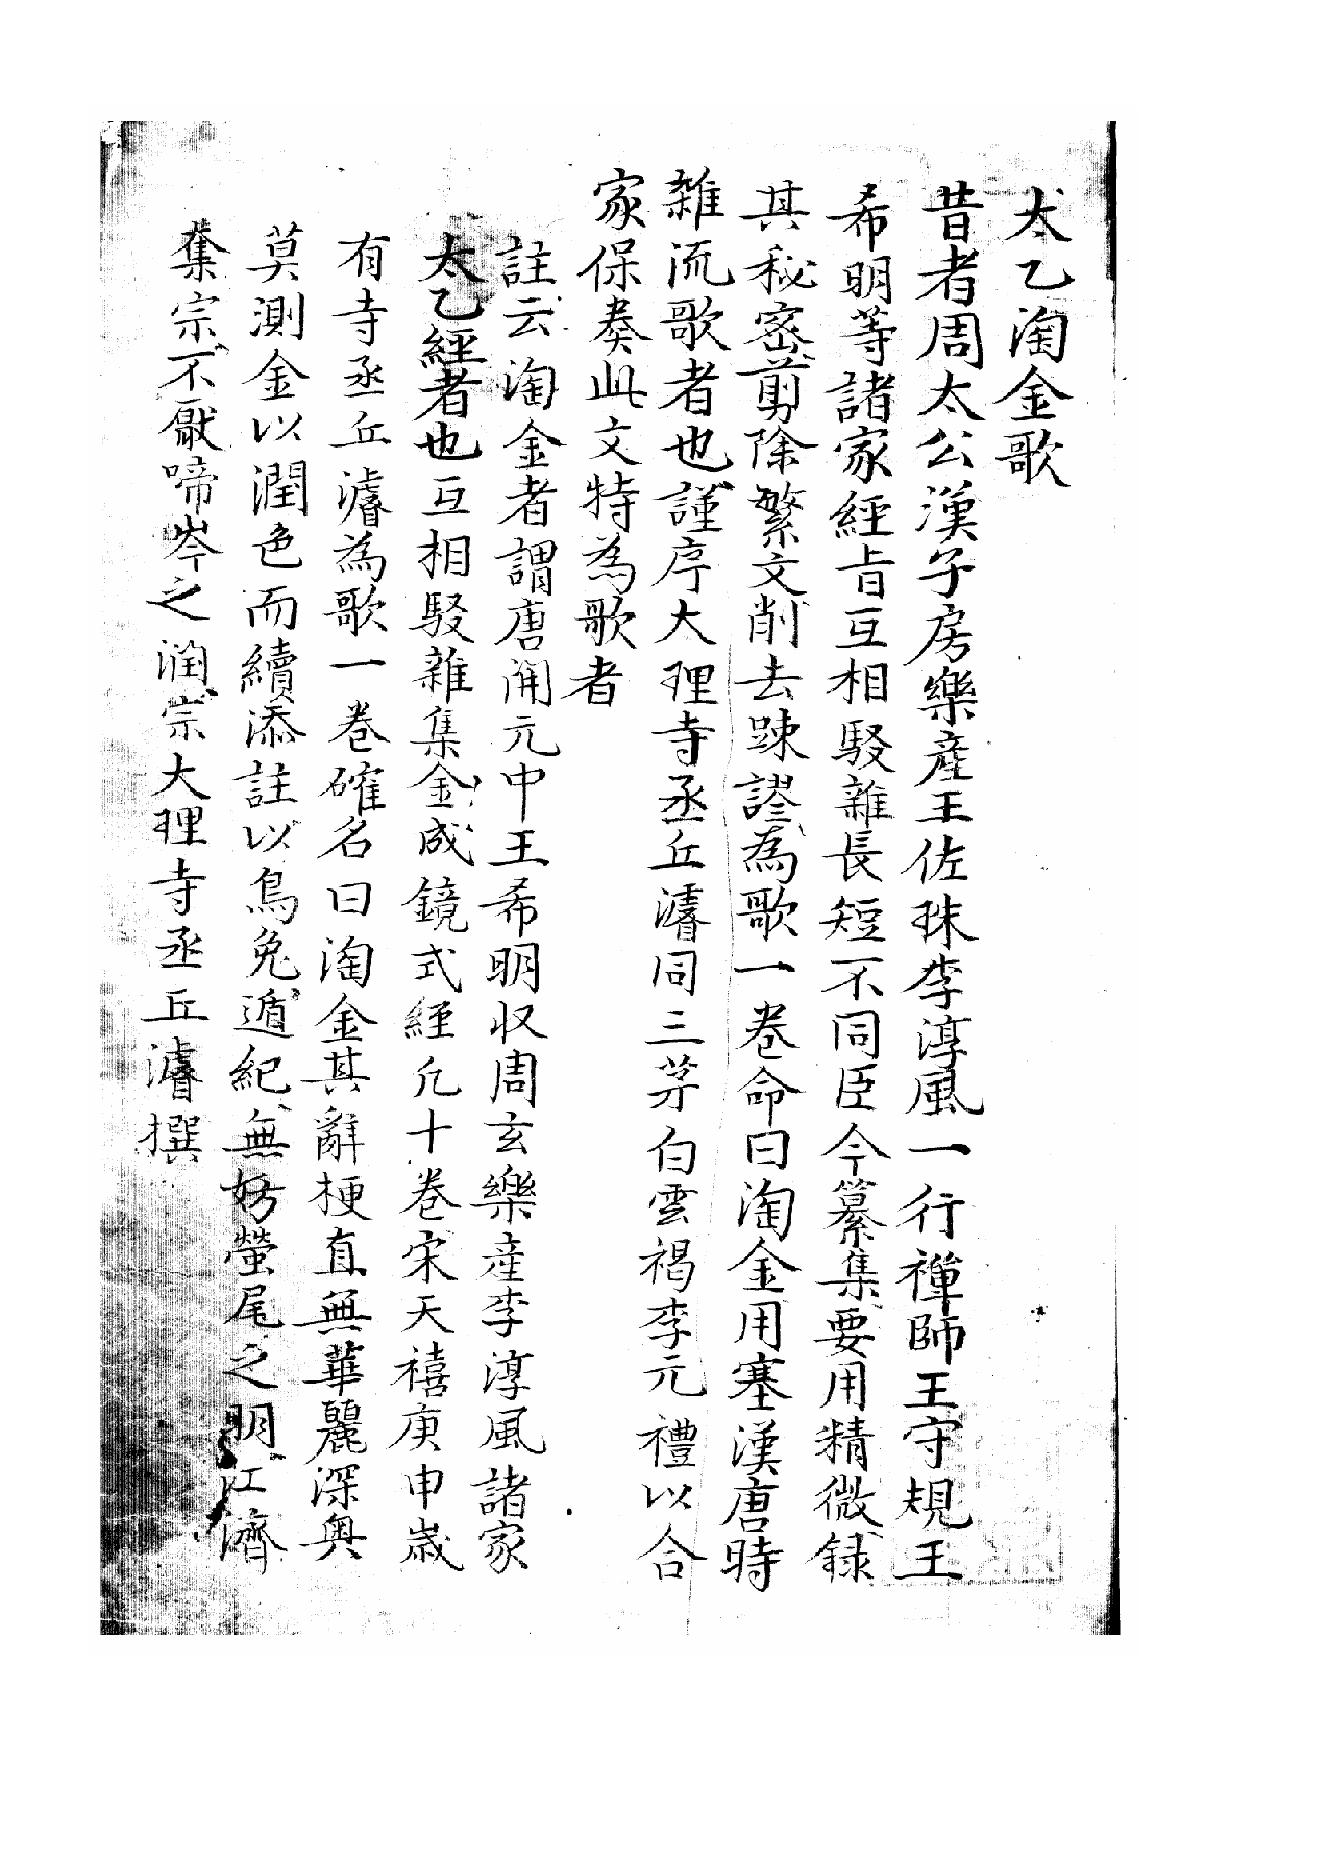 太乙淘金歌
昔者周太公漢子房樂產王佐珠李淳風一行禪師王守規王
希明等諸家經旨互相駁雜長短不同臣今纂集要用精微録
其秘密剪除繁文削去踈謬為歌一巻命曰淘金用塞漢唐時
雜流歌者也謹序大理寺丞丘濬同三茅白雲褐李元禮以合
家保奏此文特為歌者
註云淘金者謂唐開元中王希明収周玄樂產李淳風諸家
太乙經者也互相駁雜集金成鏡式經凢十巻宋天禧庚申歲
有寺丞丘濬為歌一巻確名曰淘金其辭梗直無華麗深奥
莫測金以潤色而續添註以鳥兔遁紀無妨螢尾之明江濟
奪宗不厭啼岑之潤宗大理寺丞丘濬撰